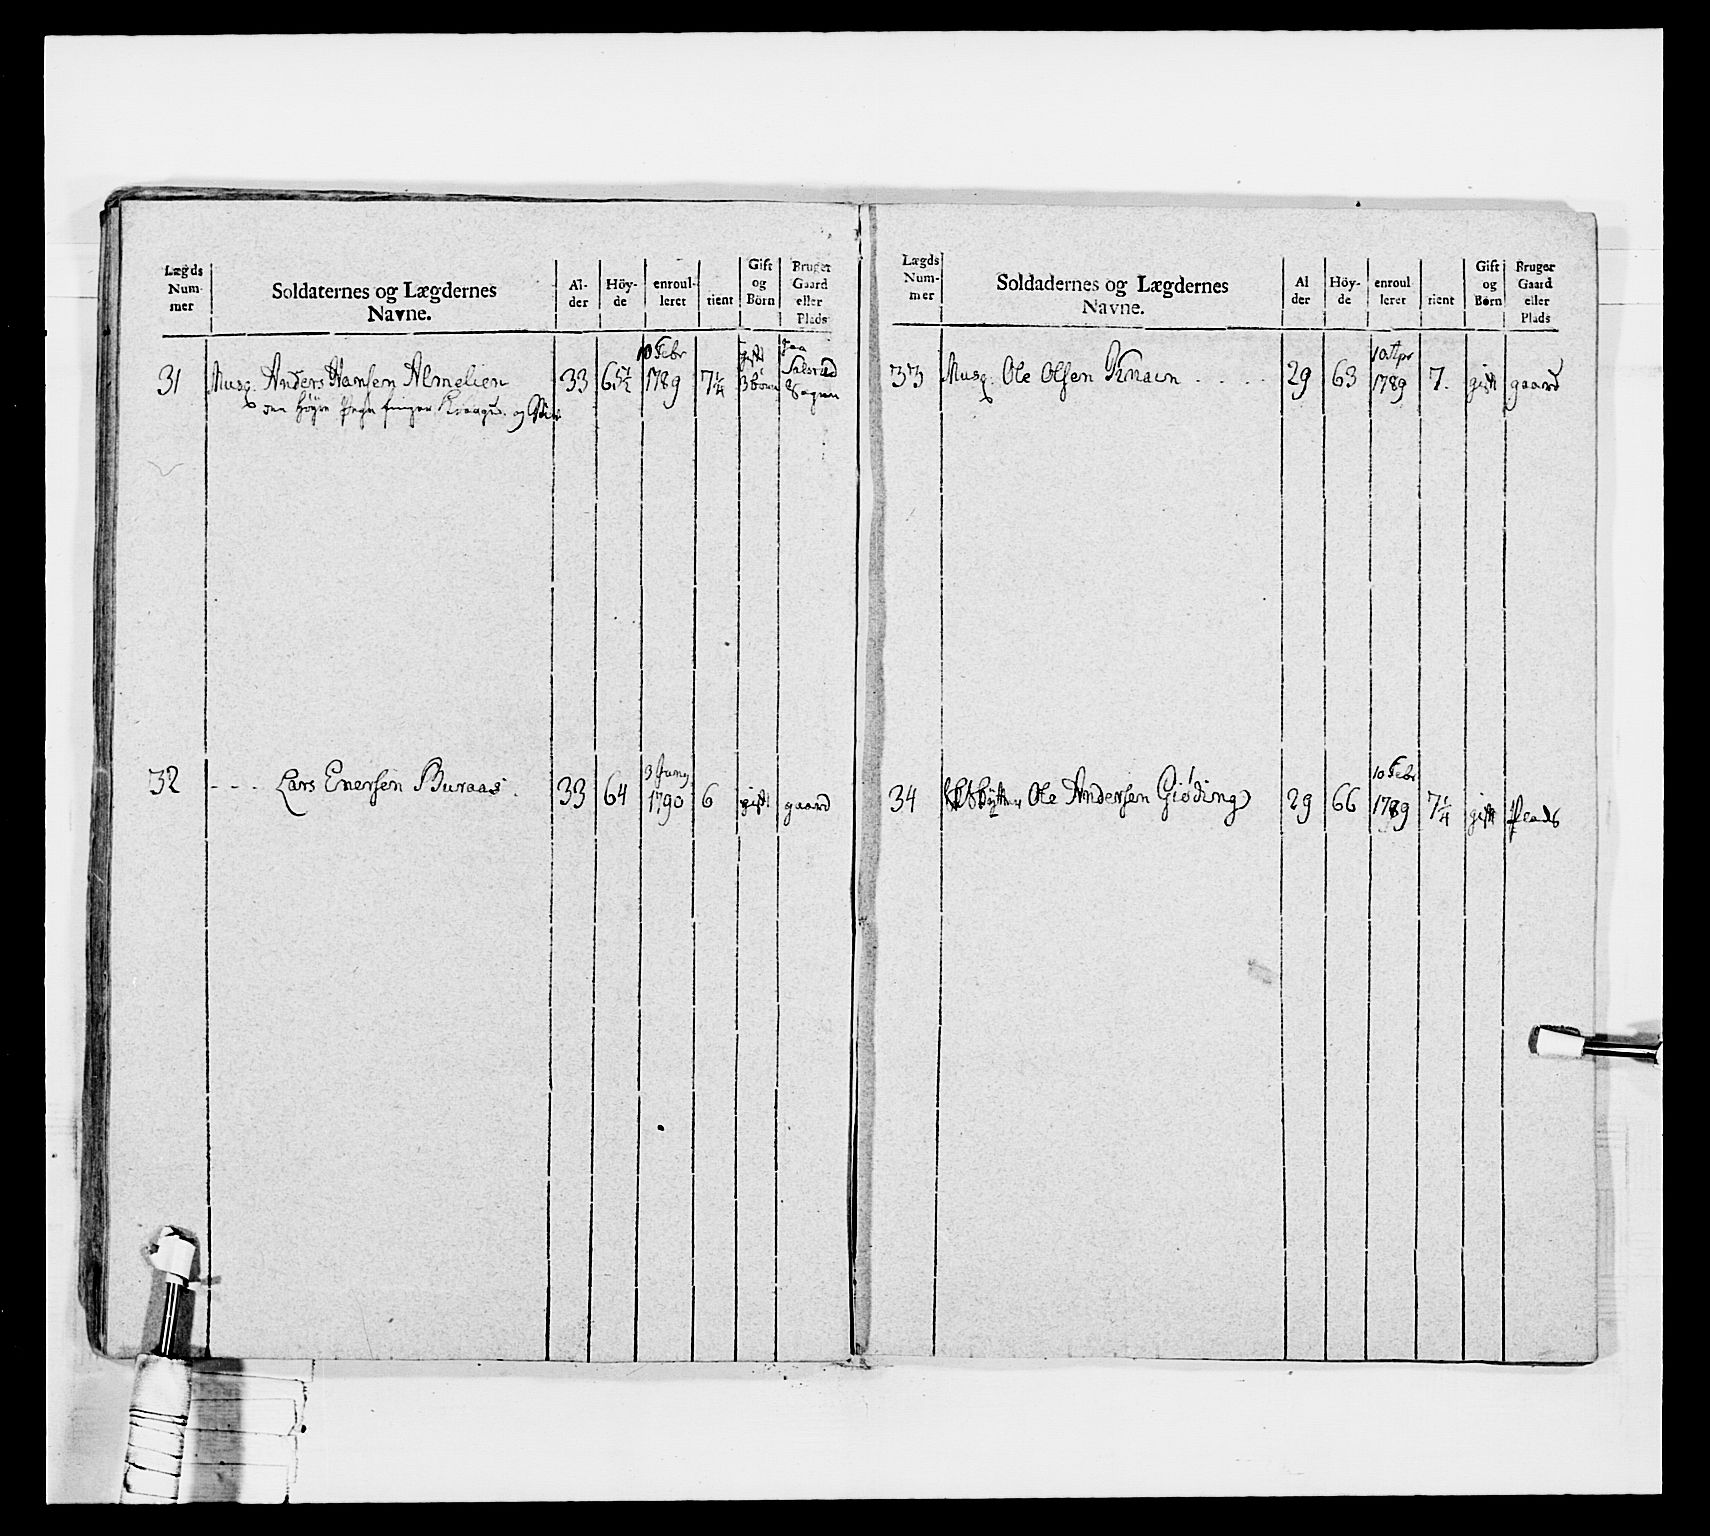 Lægds Num- mer
Soldaternes og Lægdernes Navne.
Al- der
Höy- de
enroul- leret
tient
Gift og Börn
Bruger Gaard eller Plads
31 Musq. Anders Hansen Almelien 33 65½ 10 Febr 1789 7¼ gift 3 Börn paa
32 - - - Lars Enersen Buraas. 33 64 3 Juny 1790 6 gift gaard
Lægds Num- mer
Soldadernes og Lægdernes Navne.
Al der
Höy- de
enroul leret
rient
Gift og Börn
Bruger Gaard eller Plads
33 Musq. Ole Olsen Knain . . . . . 29 63 10 Apr 1789 7. gift gaard
34 Ole Andersen Giöding 29 66 10 Febr 1789 7¼ gift Plads